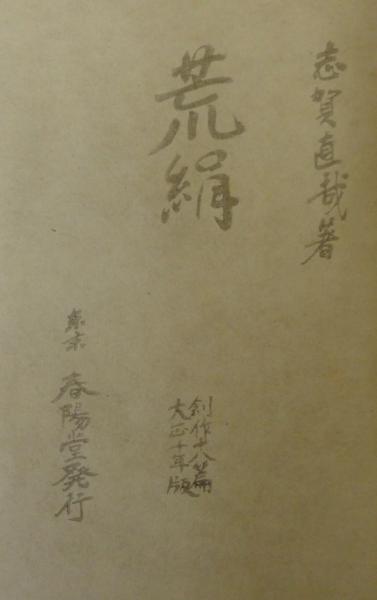 志賀直哉著
荒絹
創作十八篇
大正十年版
東京 春陽堂発行